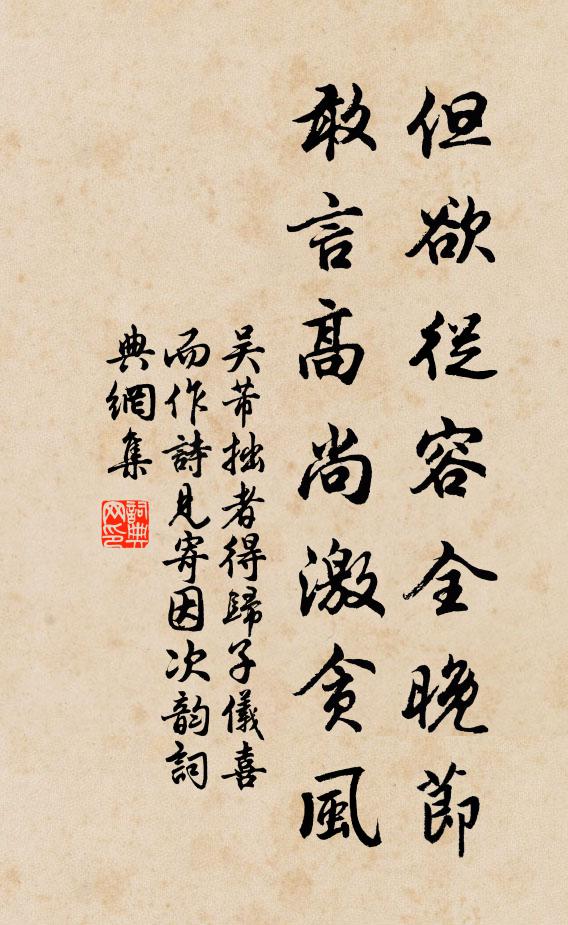 但欲從容全晚節
敢言高尚激貪風
吴芾拙者得歸子儀喜
而作詩見寄因次韵詞
典網集
詞典
网印